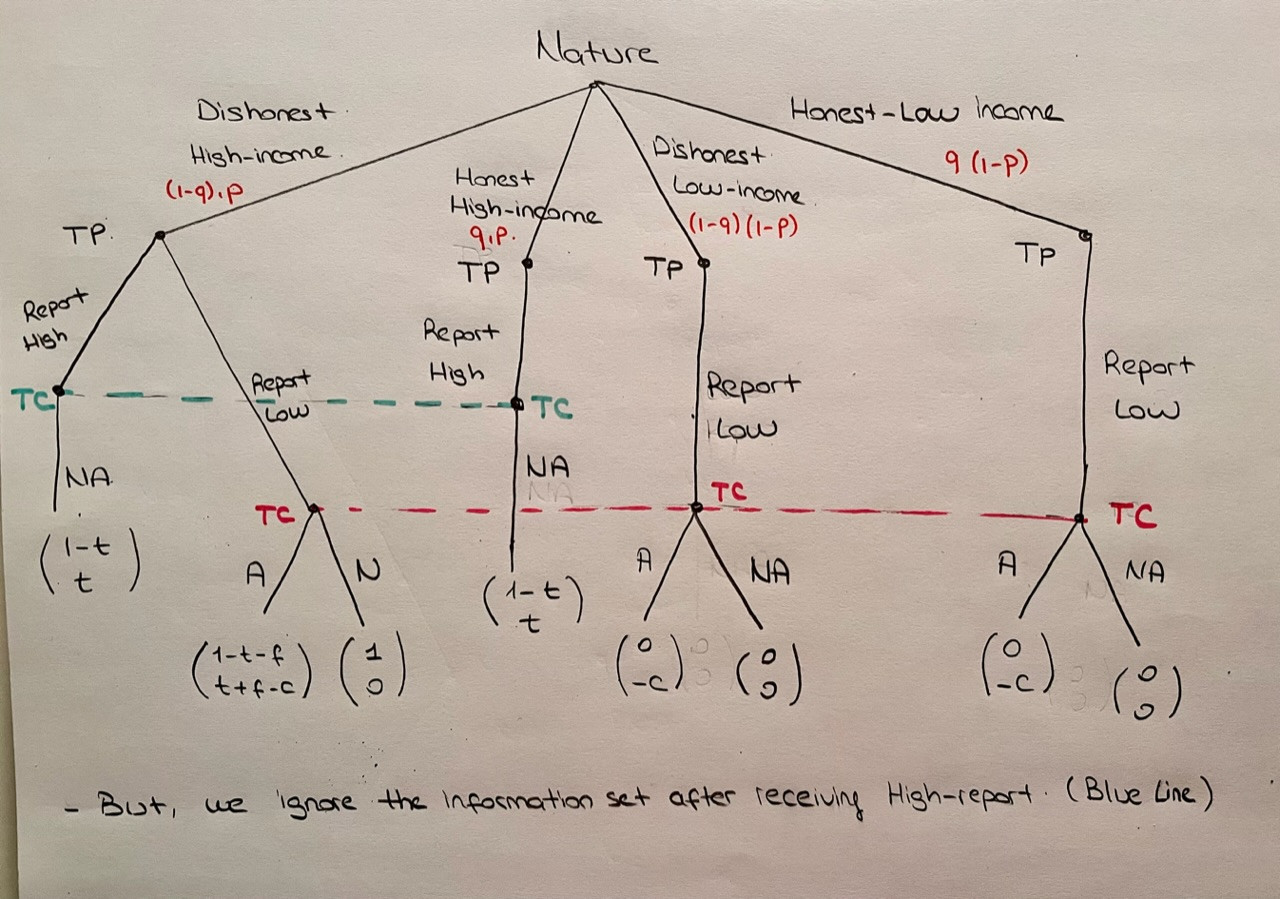 Nature
Dishonest
High-income
(1-q).p
Honest
High-income
q.p.
Dishonest
Low-income
(1-q)(1-p)
Honest-Low income
q(1-p)
TP.
TP
TP
TP
Report
High
Report
Low
Report
High
Report
Low
Report
Low
TC
TC
NA
NA
NA
(1-t
t)
TC
TC
TC
A
N
(1-t
t)
A
NA
A
NA
(1-t-f
t+f-c)
(1
0)
(0
-c)
(0
0)
(0
-c)
(0
0)
- But, we ignore the information set after receiving High-report. (Blue Line)